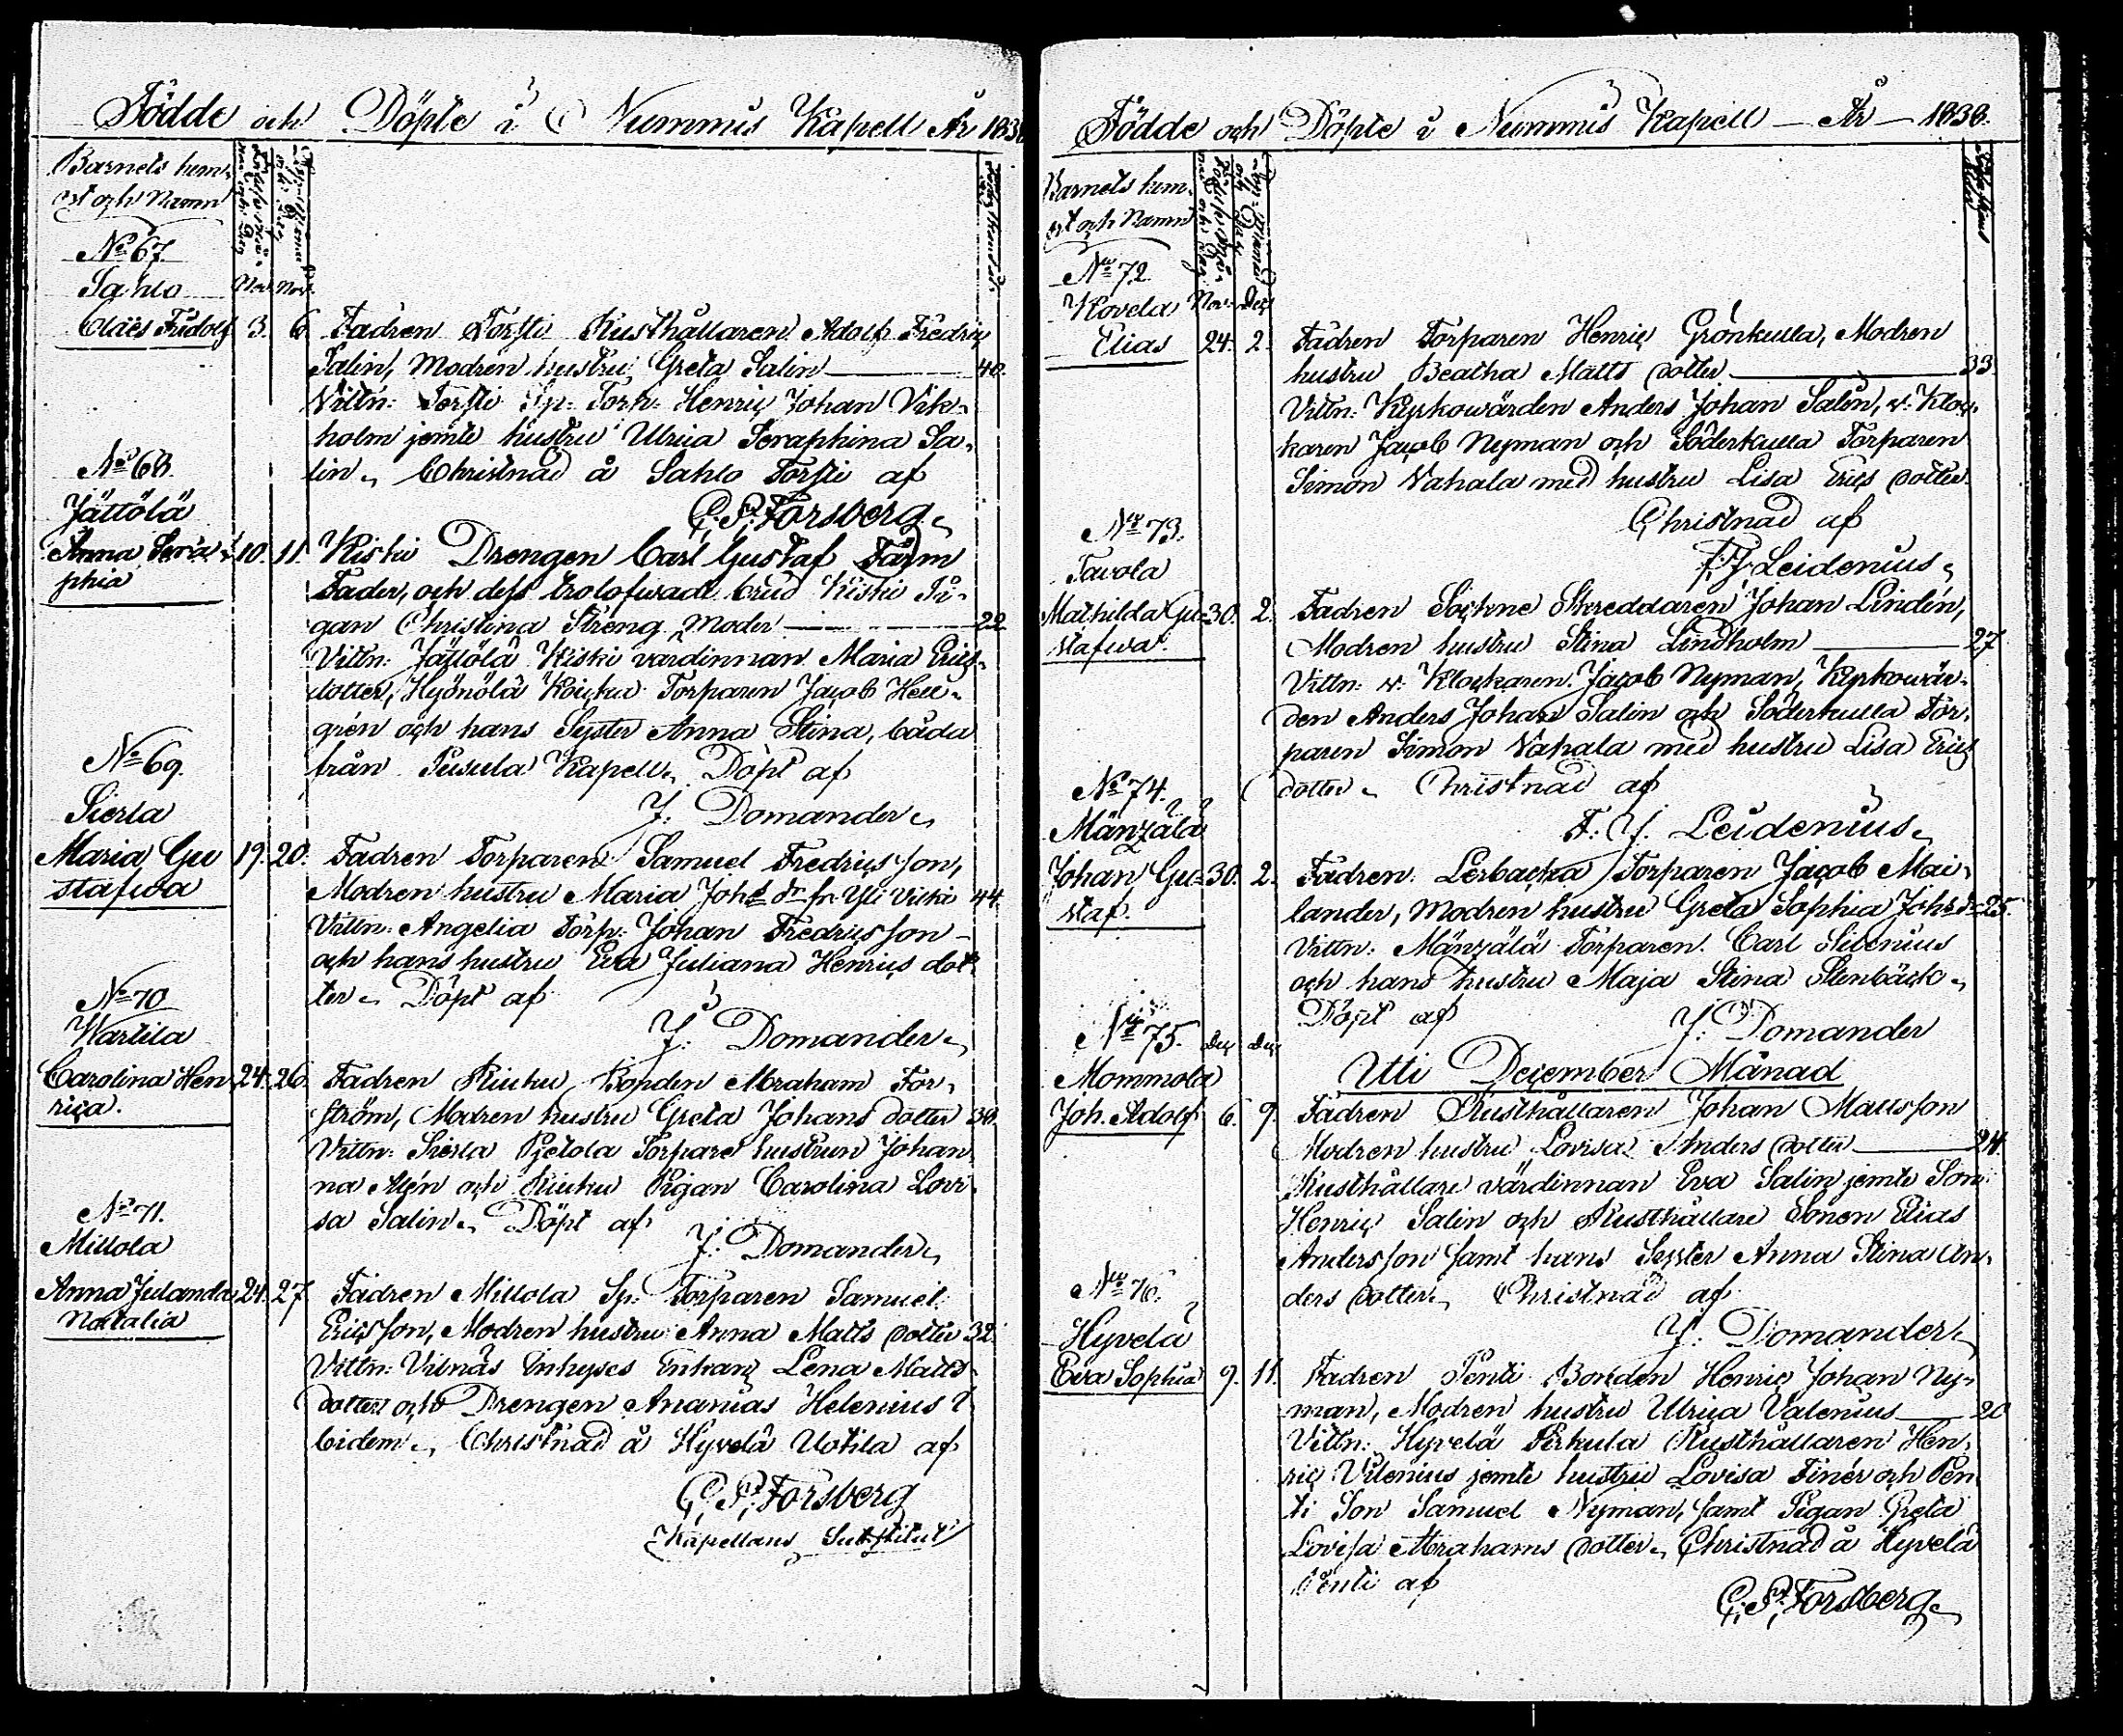 Födde och Döpte i Nummis Kapell År 183
Barnets hem-
ort och Namn
No 67.
Sahlo Nov. Nov.
Claës Fridolf 3. 6. Fadren Torsti Rusthållaren Adolf Fredric
Salin, Modren hustru Greta Salin 40.
Vittn: Torsti Sp: Torp: Henric Johan Vik-
holm jemte hustru Ulrica Seraphina Sa-
lin. Christnad å Sahlo Torsti af
C. P. Forsberg.
No 68.
Jättölä
Anna Sera- 10. 11. Kiski Drengen Carl Gustaf Farm
phia
Fader, och dess trolofwade brud Kiski Pi-
gan Christina Streng Moder 22
Vittn: Jättölä Kiski värdinnan Maria Erics-
dotter, Hyönölä Torparen Jacob Hell-
grén och hans Syster Anna Stina, båda
från Pusula Kapell. Döpt af
J. Domander.
No 69.
Sierla
Maria Gu 19. 20. Fadren Torparen Samuel Fredricsson,
stafwa
Modren hustru Maria Johs dr fr. Yli Viski 44.
Vittn: Angelia Torp: Johan Fredricsson
och hans hustru Eva Juliana Henrics dot-
ter. Döpt af
J. Domander.
No 70
Wartila
Carolina Hen 24. 26. Fadren Kiuku Bonden Abraham For-
rica.
ström, Modren hustru Greta Johans dotter 30.
Vittn: Sierla Pietola Torpare hustrun Johan-
na Alén och Kiuku Pigan Carolina Lovi-
sa Salin. Döpt af
J. Domander.
No 71.
Millola
Anna Julanda 24. 27 Fadren Millola Sp: Torparen Samuel
Natalia
Ericsson, Modren hustru Anna Matts dotter 32.
Vittn: Vilnäs Inhyses Enkan Lena Matts-
dotter och Drengen Ananias Helenius i-
bidem. Christnad å Hyvelä Uotila af
C. P. Forsberg
Kapellans Substitut
Födde och Döpte i Nummis Kapell — År — 1838.
Barnets hem-
ort och Namn
No 72.
Kovela Nov. Dec
Elias 24. 2. Fadren Torparen Henric Grönkulla, Modren
hustru Beatha Matts dotter 33.
Vittn: Kyrkowärden Anders Johan Salin, v. Kloc-
karen Jacob Nyman och Söderkulla Torparen
Simon Vahala med hustru Lisa Erics dotter.
Christnad af
F. J. Leidenius.
No 73.
Tavola
Mathilda Gu- 30. 2. Fadren Sockne Skreddaren Johan Lindén,
stafwa.
Modren hustru Stina Lindholm 27
Vittn: v. Klockaren Jacob Nyman, Kyrkowär-
den Anders Johan Salin och Söderkulla Tor-
paren Simon Vahala med hustru Lisa Erics
dotter. Christnad af
F. J. Leidenius.
No 74.
Mänzälä
Johan Gu- 30. 2. Fadren Lerbacka Torparen Jacob Mai-
staf.
lander, Modren hustru Greta Sophia Johsdr 25.
Vittn: Mänzälä Torparen Carl Sibenius
och hans hustru Maja Stina Stenbäck.
Döpt af J. Domander
No 75. Dec Dec
Uti December Månad
Mommola
Joh. Adolf 6. 9. Fadren Rusthållaren Johan Mattsson
Modren hustru Lovisa Anders dotter 24.
Rusthållare värdinnan Eva Salin jemte Son
Henric Salin och Rusthållare Sonen Elias
Andersson samt hans Syster Anna Stina An-
ders dotter. Christnad af
J. Domander.
No 76.
Hyvelä
Eva Sophia 9. 11. Fadren Penti Bonden Henric Johan Ny-
man, Modren hustru Ulrica Valenius 20
Vittn: Hyvelä Pirkula Rusthållaren Hen-
ric Vilenius jemte hustru Lovisa Finér och Pen-
ti Son Samuel Nyman, samt Pigan Greta
Lovisa Abrahams dotter. Christnad å Hyvelä
Penti af
C. P. Forsberg.